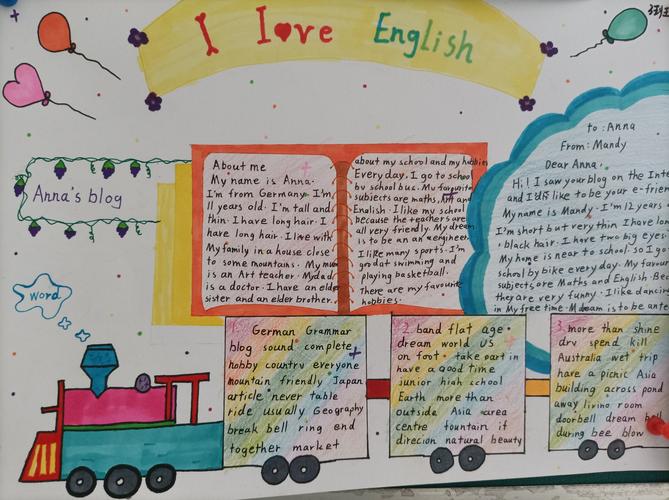 I love English
Anna's blog
word
About me
My name is Anna.
I'm from Germany. I'm
11 years old. I'm tall and
thin. I have long hair. I
have long hair. I live with
My family in a house close
to some mountains. My mum
is an Art teacher. My dad
is a doctor. I have an elder
sister and an elder brother.
about my school and my hobbies
Every day. I go to school
by school bus. My favourite
subjects are maths, Art and
English. I like my school
because the teachers are
all very friendly. My dream
is to be an an engineer.
I like many sports. I'm
good at swimming and
playing basketball.
there are my favourite
hobbies.
to: Anna
From: Mandy
Dear Anna.
Hi! I saw your blog on the Inte
and I'd like to be your e-frien
My name is Mandy. I'm 12 years
I'm short but very thin I have lon
black hair. I have two big eyes.
My home is near to school. so I go
school by bike every day. My favour
subjects are Maths and English. Bec
they are very funny. I like dancing
in My free time. M dream is to be an
1. German Grammar
blog sound complete
hobby country everyone
mountain friendly Japan
article never table
ride usually Geography
break bell ring end
together market
2. band flat age
dream world US
on foot take part in
have a good time
junior high school
Earth more than
outside Asia area
centre fountain if
direcion natural beauty
3. more than shine
dry spend kill
Australia wet trip
have a picnic Asia
building across pond
away living room
doorbell dream bell
during bee blow